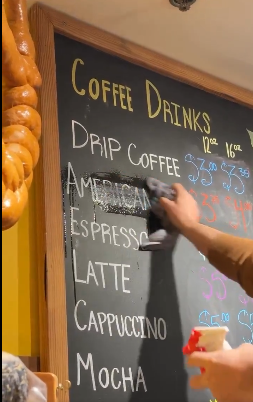 COFFEE DRINKS
12oz 16oz
DRIP COFFEE
AMERICAN
ESPRESSO
LATTE
CAPPUCCINO
MOCHA